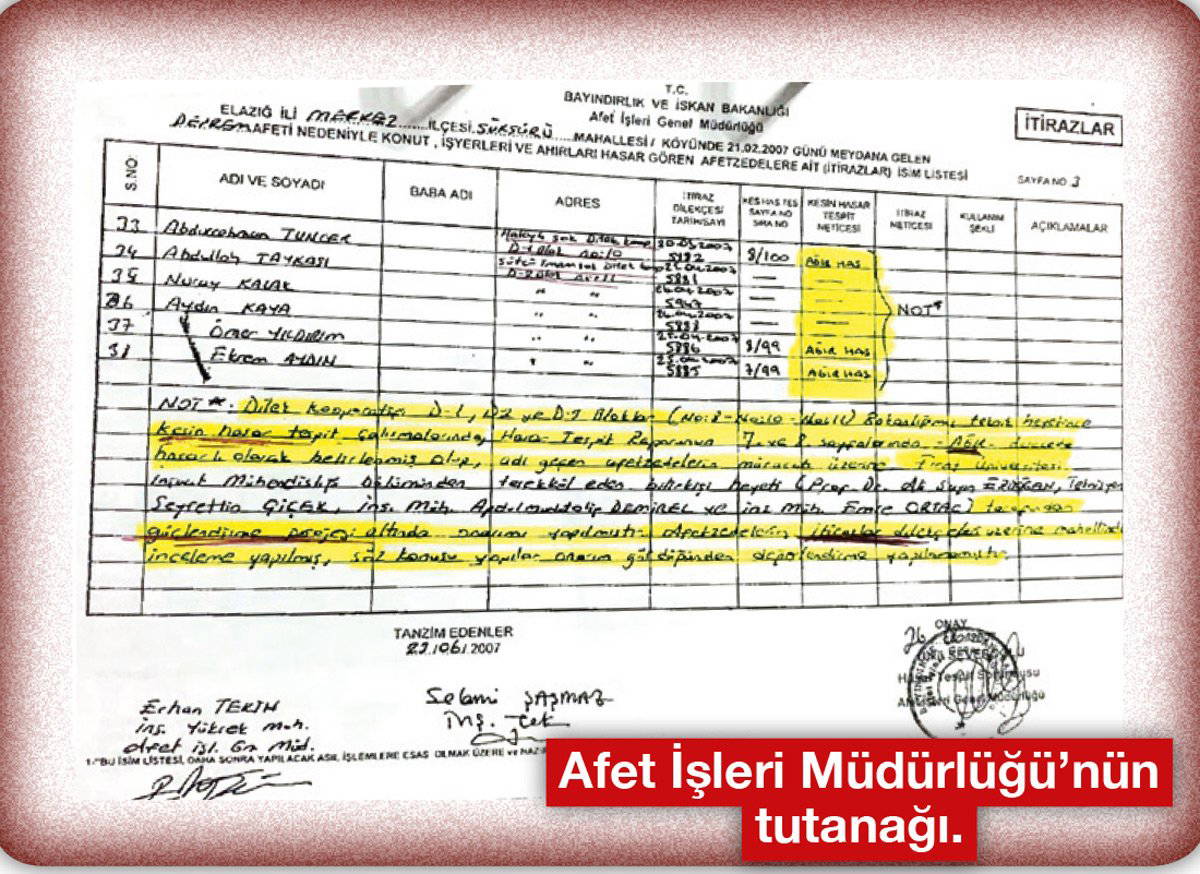 T.C.
BAYINDIRLIK VE İSKAN BAKANLIĞI
Afet İşleri Genel Müdürlüğü
İTİRAZLAR
ELAZIĞ İLİ MERKEZ İLÇESİ SÜRSÜRÜ MAHALLESİ / KÖYÜNDE 21.02.2007 GÜNÜ MEYDANA GELEN
DEPREM AFETİ NEDENİYLE KONUT, İŞYERLERİ VE AHIRLARI HASAR GÖREN AFETZEDELERE AİT (İTİRAZLAR) İSİM LİSTESİ
SAYFA NO 3
S.NO ADI VE SOYADI BABA ADI ADRES İTİRAZ DİLEKÇESİ TARİH/SAYI KES HAS TES SAYFA NO SIRA NO KESİN HASAR TESPİT NETİCESİ İTİRAZ NETİCESİ KULLANIM ŞEKLİ AÇIKLAMALAR
33 Abdurrahman TUNCER 5182 8/100 AĞIR HAS
34 Abdullah TAYKASI 5881
35 Nuray 5947
36 Aydın KAYA NOT*
37 Ömer YILDIRIM 5886 8/99 AĞIR HAS
38 Ekrem AYDIN 5885 7/99 AĞIR HAS
NOT*: Dilek Kooperatifi D-1, D2 ve Bloklar Bakanlığımız teknik heyetince
kesin hasar tespit çalışmalarında, Hasar Tespit Raporunun 7. ve 8 sayfalarında AĞIR derecede
hasarlı olarak belirlenmiş olup, adı geçen afetzedelerin müracatı üzerine Fırat Üniversitesi
İnşaat Mühendisliği bölümünden teşekkül eden bilirkişi heyeti (Prof. Dr. Teknisyen
Seyfettin ÇİÇEK, ins. Müh. Abdulmuttalip DEMİREL ve ins Müh. Emre ORTAÇ) tarafından
güçlendirme projesi altında onarımı yapılmıştır. Afetzedelerin itirazlar dilekçeleri üzerine mahallinde
inceleme yapılmış, söz konusu yapılar onarım gördüğünden değerlendirme yapılmamıştır
TANZİM EDENLER
22/06/2007
ONAY
Erhan TEKİN
ins. Yüksek Müh.
Afet işl. Gn Müd.
Selami ŞAŞMAZ
İnş. Tek
1-"BU İSİM LİSTESİ, DAHA SONRA YAPILACAK ASIL İŞLEMLERE ESAS OLMAK ÜZERE ve
Afet İşleri Müdürlüğü’nün
tutanağı.